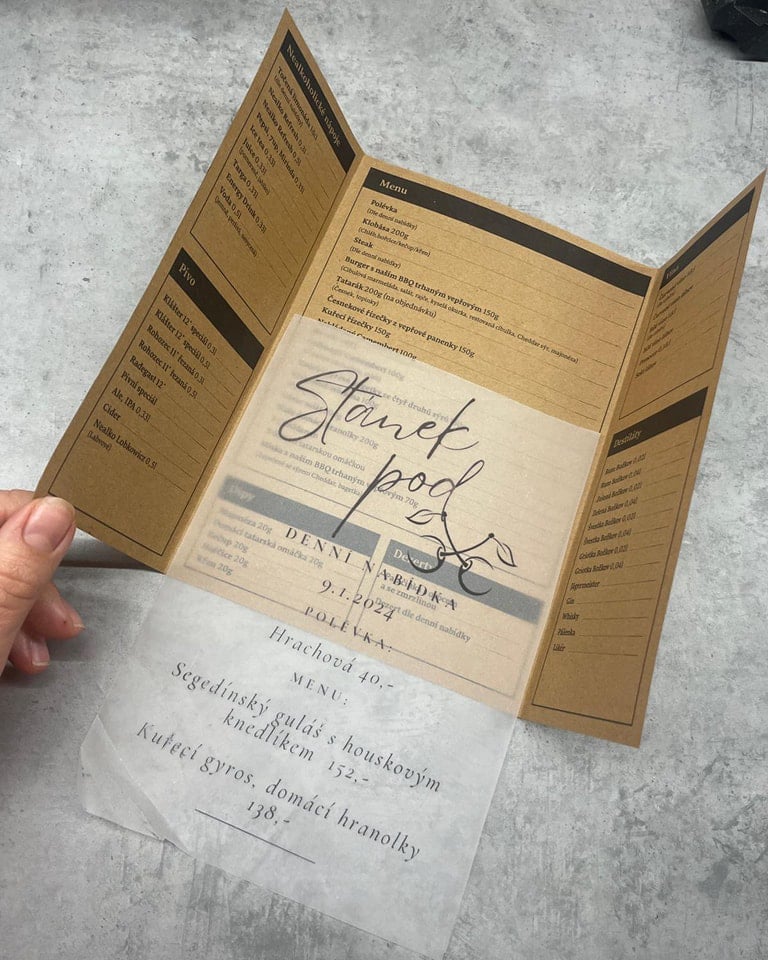 Nealkoholické nápoje
Točená limonáda
(Dle denní nabídky)
Nealko Refresh 0,3l
Nealko Refresh 0,5l
Pepsi, 7up, Mirinda 0,33l
Ice tea 0,33l
Juice 0,33l
Targa 0,33l
Energy Drink 0,33l
Voda 0,5l
Pivo
Klášter 12° speciál 0,3l
Klášter 12° speciál 0,5l
Rohozec 11° řezaná 0,3l
Rohozec 11° řezaná 0,5l
Radegast 12°
Pivní speciál
Ale, IPA 0,33l
Cider
Nealko Lobkowicz 0,5l
(Lahvové)
Menu
Polévka
(Dle denní nabídky)
Klobása 200g
(Chléb,hořčice/kečup/křen)
Steak
(Dle denní nabídky)
Burger s našim BBQ trhaným vepřovým 150g
(Cibulová marmeláda, salát, rajče, kyselá okurka, restovaná cibulka, Cheddar sýr, majonéza)
Tatarák 200g (na objednávku)
(Česnek, topinky)
Česnekové řízečky z vepřové panenky 150g
Kuřecí řízečky 150g
Camembert 100g
ze čtyř druhů sýrů
200g
tatarskou omáčkou
s našim BBQ trhaným vepřovým 70g
Dipy
20g
Domácí tatarská omáčka 20g
Kečup 20g
Hořčice 20g
Křen 20g
Dezerty
a se zmrzlinou
Dezert dle denní nabídky
Destiláty
Rum Božkov 0,02l
Rum Božkov 0,04l
Zelená Božkov 0,02l
Zelená Božkov 0,04l
Švestka Božkov 0,02l
Švestka Božkov 0,04l
Griotka Božkov 0,02l
Griotka Božkov 0,04l
Jägermeister
Gin
Whisky
Pálenka
Likér
Stánek
pod
DENNÍ NABÍDKA
9.1.2024
POLÉVKA:
Hrachová 40,-
MENU:
Segedínský guláš s houskovým
knedlíkem 152,-
Kuřecí gyros, domácí hranolky
138,-